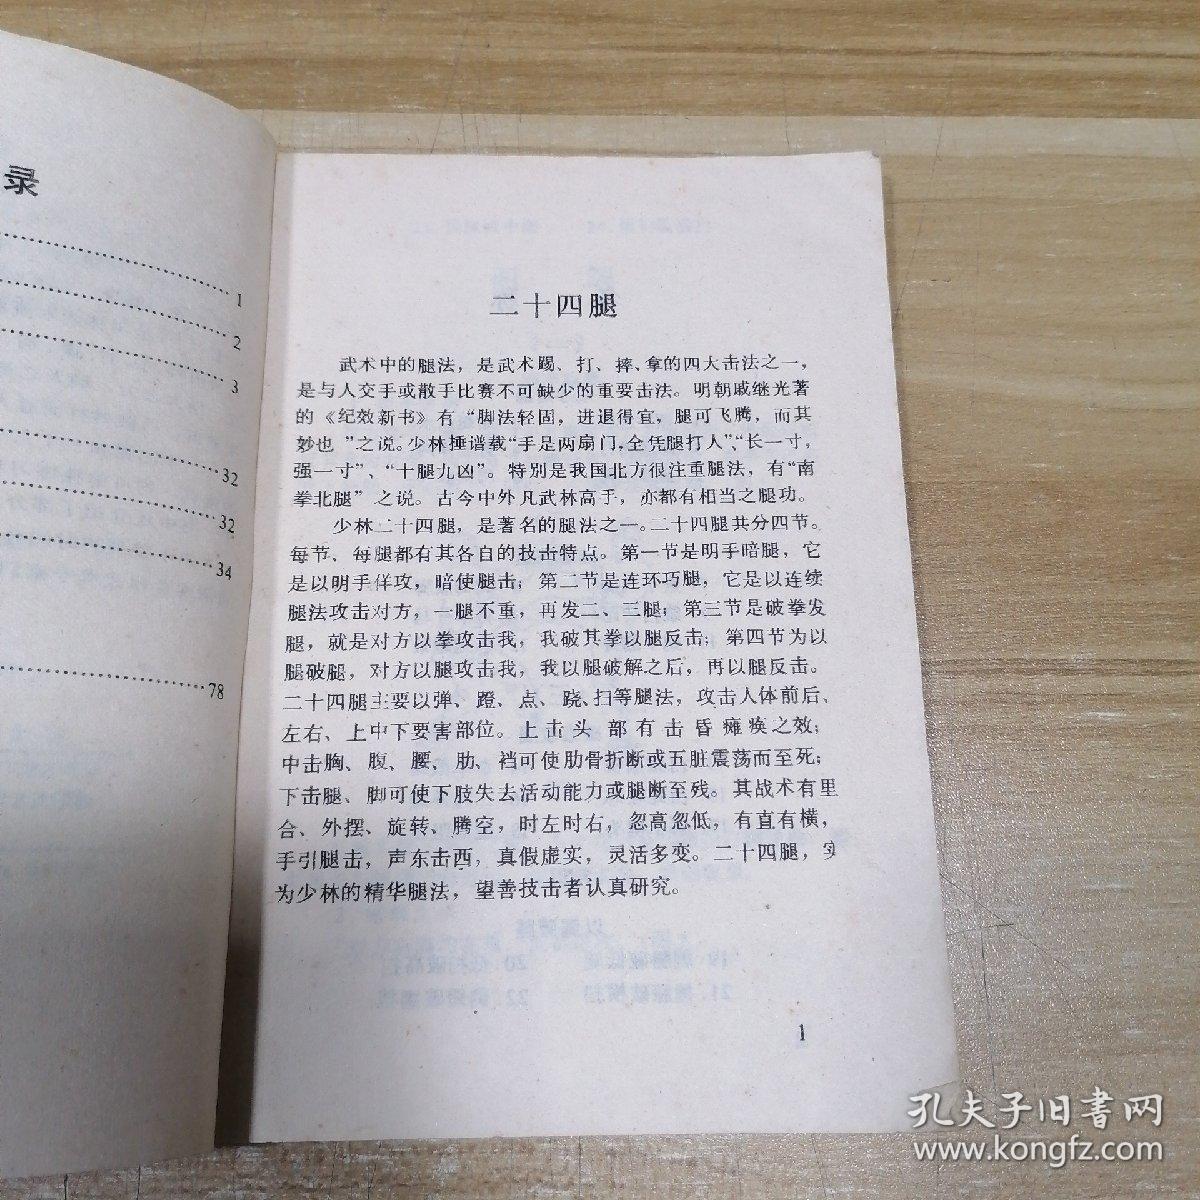 录
1
2
3
32
32
34
78
二十四腿
武术中的腿法，是武术踢、打、摔、拿的四大击法之一，
是与人交手或散手比赛不可缺少的重要击法。明朝戚继光著
的《纪效新书》有“脚法轻固，进退得宜，腿可飞腾，而其
妙也”之说。少林捶谱载“手是两扇门，全凭腿打人”、“长一寸，
强一寸”、“十腿九凶”。特别是我国北方很注重腿法，有“南
拳北腿”之说。古今中外凡武林高手，亦都有相当之腿功。
少林二十四腿，是著名的腿法之一。二十四腿共分四节。
每节、每腿都有其各自的技击特点。第一节是明手暗腿，它
是以明手佯攻，暗使腿击；第二节是连环巧腿，它是以连续
腿法攻击对方，一腿不重，再发二、三腿；第三节是破拳发
腿，就是对方以拳攻击我，我破其拳以腿反击；第四节为以
腿破腿，对方以腿攻击我，我以腿破解之后，再以腿反击。
二十四腿主要以弹、蹬、点、跷、扫等腿法，攻击人体前后、
左右、上中下要害部位。上击头部有击昏瘫痪之效；
中击胸、腹、腰、肋、裆可使肋骨折断或五脏震荡而至死；
下击腿、脚可使下肢失去活动能力或腿断至残。其战术有里
合、外摆、旋转、腾空，时左时右，忽高忽低，有直有横，
手引腿击，声东击西，真假虚实，灵活多变。二十四腿，实
为少林的精华腿法，望善技击者认真研究。
1
孔夫子旧书网
www.kongfz.com